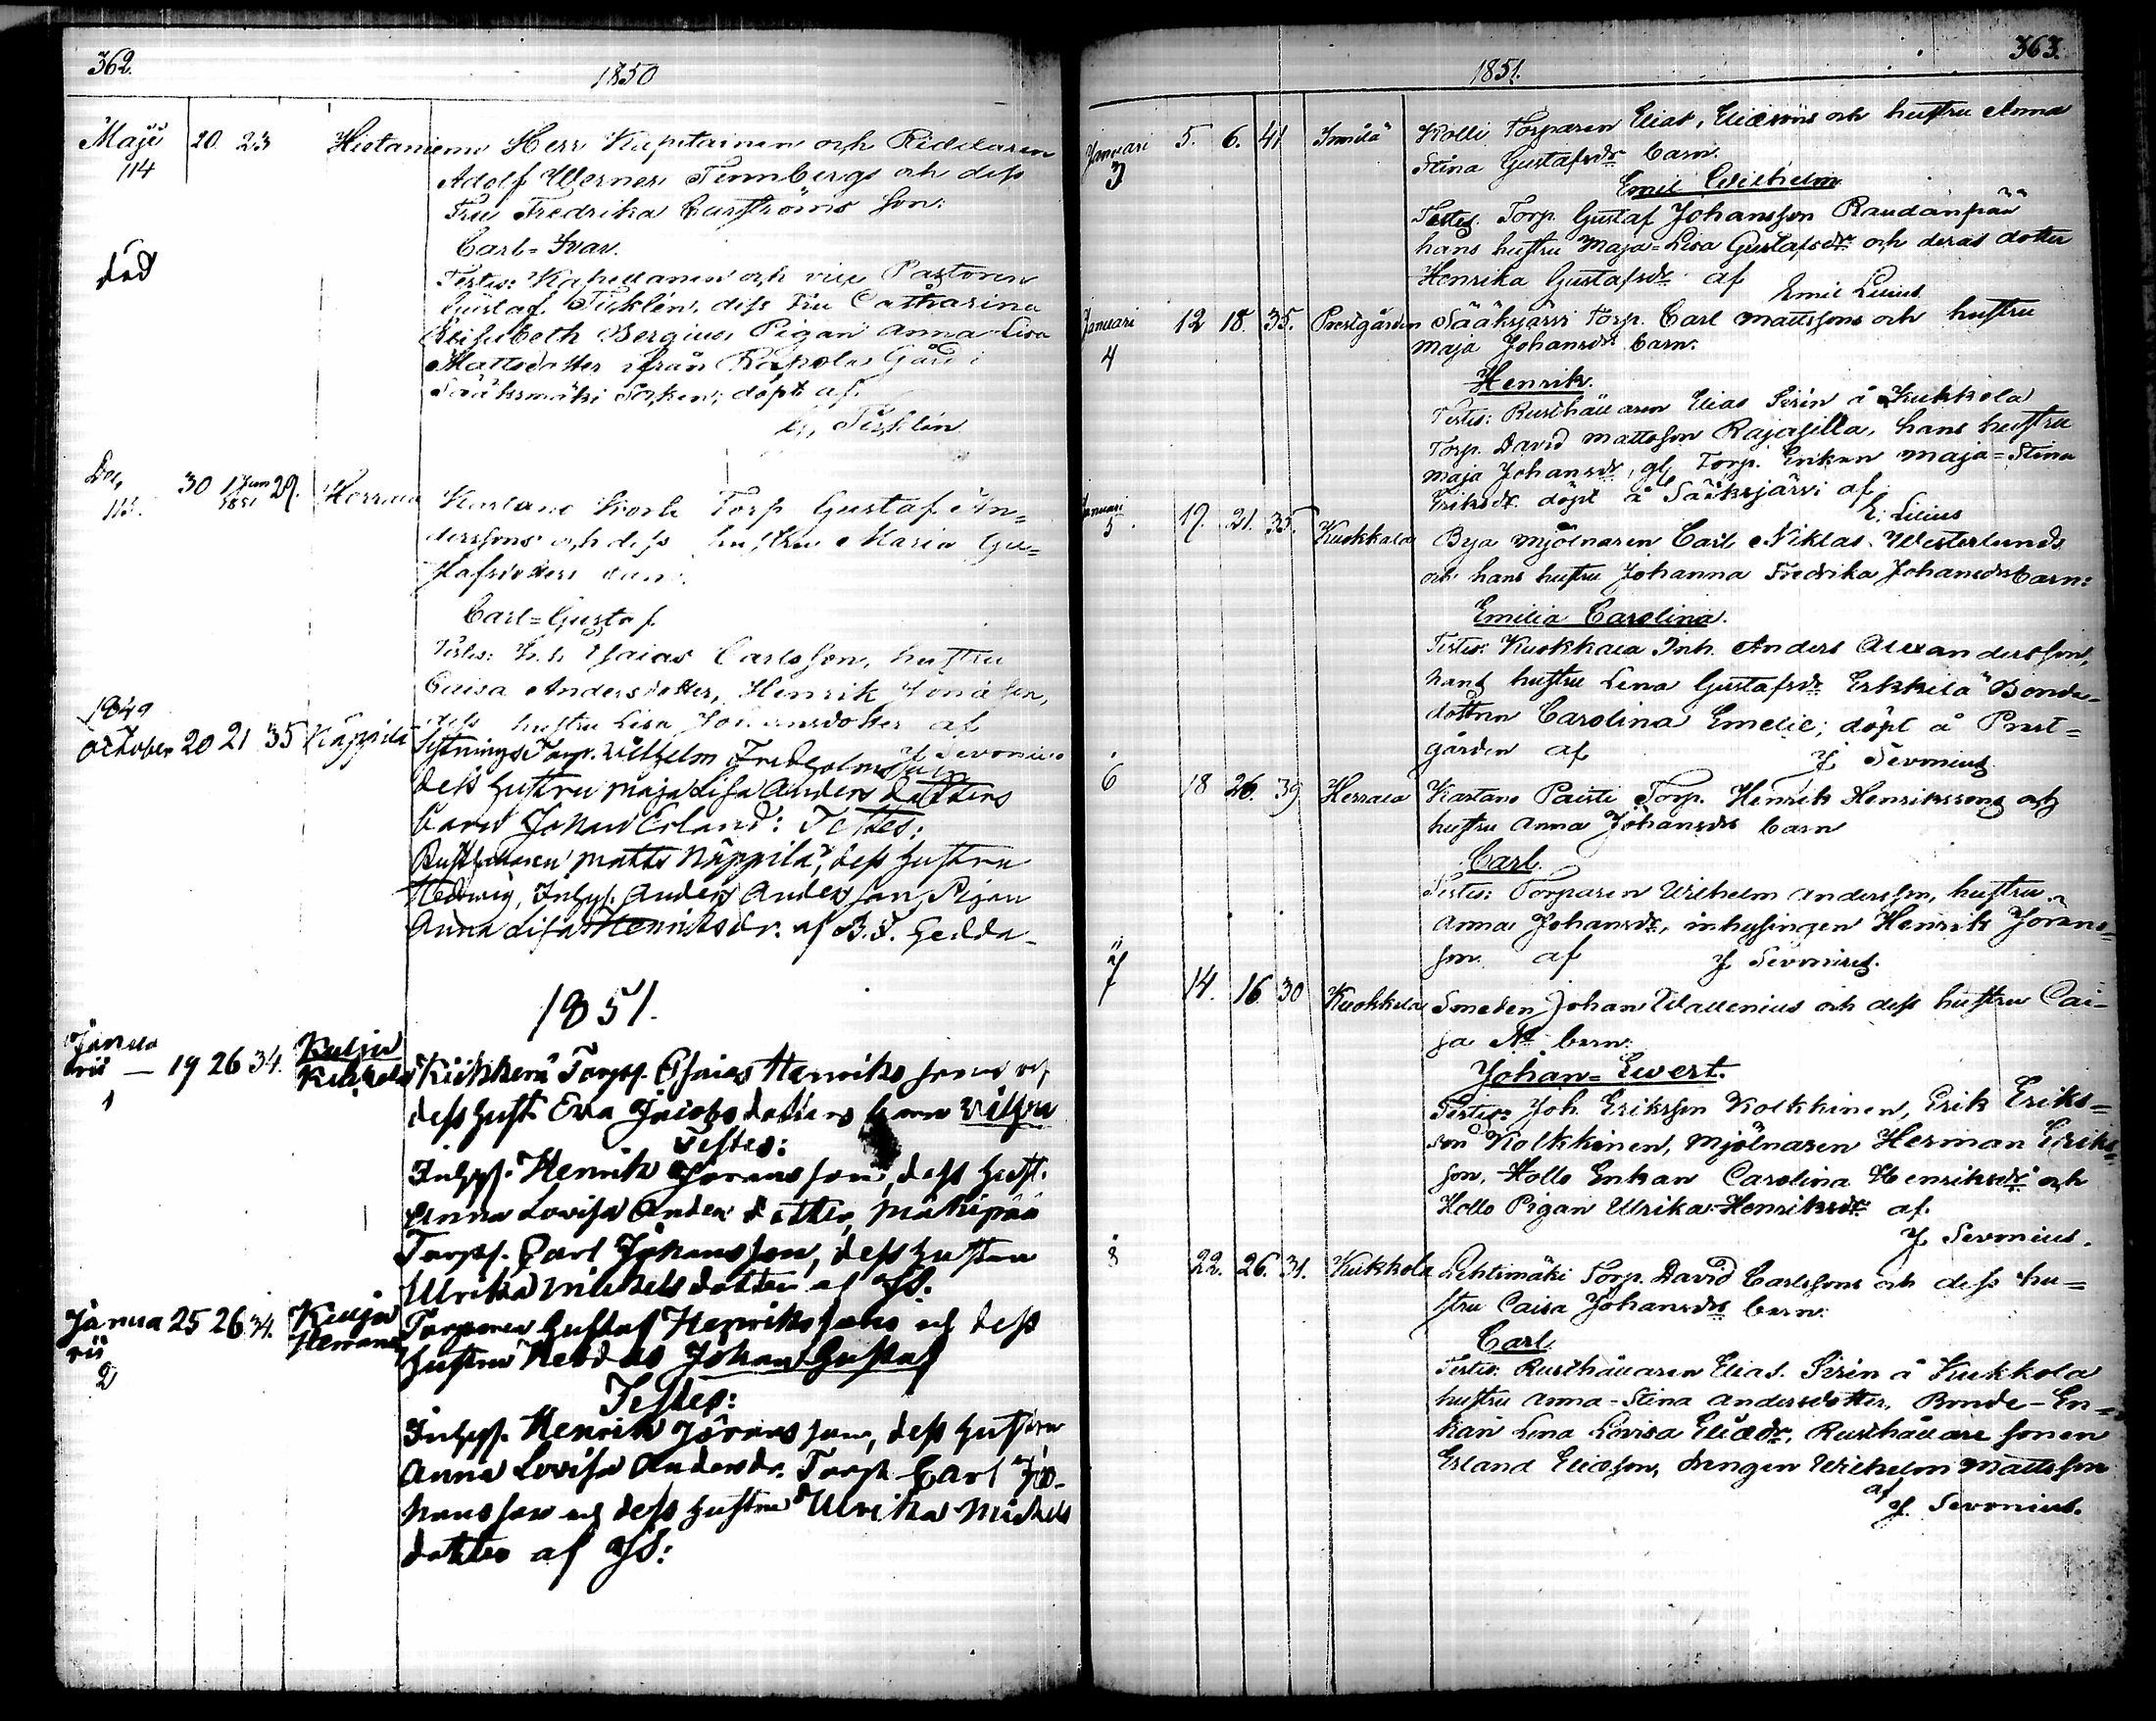 362.
1850
Maji 20. 23 Hietaniemi Herr Kapitainen och Riddaren
114 Adolf Werner Tennbergs och dess
Fru Fredrika Carströms son:
Carl=Ivar.
död
Testes: Kapellanen och vice Pastoren
Gustaf Ticklén, dess Fru Catharina
Elisabeth Bergius, Pigan Anna Lisa
Mattsdotter ifrån Rapola Gård i
Sääksmäki Socken; döpt af
G. Ticklén
Dec, 30 1 Jan 1851 29. Herrala Kartano Torp. Gustaf An=
115. derssons och dess hustru Maria Gu=
stafsdotters barn:
Carl=Gustaf
Testes: Inh. Esaias Carlsson, hustru
Caisa Andersdotter, Henrik Jonasson,
dess hustru Lisa Johansdotter af
J. Sevonius
1849
October 20 21 35 Näppilä Torp. Wilhelm Fredholms
dess hustru Maja Lisa Anders dotters
barn Johan Erland: Testes:
Rusthållaren Matts Näppilä, dess hustru
Hedwig, Inhys. Anders Andersson, Pigan
Anna Lisa Henriksdr. af B. F. Hedda-
1851.
Janua
rii — 19 26 34. Torp. Esaias Henrikssons och
1 dess hust. Eva Jacobs dotters barn
Testes:
Inhys. Henrik Göransson, dess hust.
Anna Lovisa Anders dotter, Mäkipää
Torp. Carl Johansson, dess hustru
Ulrika Michels dotter af JS.
Janua 25 26 34. Torparen Gustaf Henrikssons och dess
rii hustru Johan Gustaf
2
Testes:
Inhys. Henrik Göransson, dess hustru
Anna Lovisa Andersdr. Torp. Carl Jo-
hansson och dess hustru Ulrika Michels
dotter af JS:
363.
1851.
Januari 5. 6. 41 Immilä Kolli Torparen Elias Eliæsons och hustru Anna
3 Stina Gustafsdr barn.
Emil Wilhelm
Testes. Torp. Gustaf Johansson Raudanpää
hans hustru Maja=Lisa Gustafsdr och deras dotter
Henrika Gustafsdr af Emil Lilius
Januari 12 18. 35. Prestgården Sääksjärvi Torp. Carl Mattssons och hustru
4 Maja Johansdr barn:
Henrik.
Testes: Rusthållaren Elias Sirén å Kukkola
Torp. David Mattsson Rajasilla, hans hustru
Maja Johansdr, gl. Torp. Enkan Maja=Stina
Eriksdr. döpt å Sääksjärvi af
E: Lilius
Januari 5. 19. 21. 35. Kuokkala Bya mjölnaren Carl Niklas Westerlunds
och hans hustru Johanna Fredrika Johansdrs barn:
Emilia Carolina.
Testes: Kuokkala Inh. Anders Alexandersson,
hans hustru Lena Gustafsdr Erkkilä Bonde=
dottren Carolina Emelie; döpt å Prest=
gården af J. Sevonius
6 18 26. 39 Herrala Kartano Torp. Henrik Henrikssons och
hustru Anna Johansdrs barn
Carl.
Testes: Torparen Wilhelm Andersson, hustru
Anna Johansdr, inhysingen Henrik Jörans=
son af J. Sevonius.
7 14. 16 30 Kuokkala Smeden Johan Wallenius och dess hustru Cai=
sa Nr barn:
Johan=Ewert.
Testes: Joh. Eriksson Kolkkinen, Erik Eriks=
son Kolkkinen, Mjölnaren Herman Eriks=
son, Hollo Enkan Carolina Henriksdr och
Hollo Pigan Ulrika Henriksdr af
J. Sevonius.
8 22. 26. 31. Kukkola Lehtimäki Torp. David Carlssons och dess hu=
stru Caisa Johansdrs barn:
Carl
Testes: Rusthållaren Elias Sirén å Kukkola
hustru Anna=Stina Andersdotter, Bonde=En=
kan Lena Lovisa Eliædr, Rusthållare sonen
Erland Eliæson, drengen Wilhelm Mattsson
af J. Sevonius.